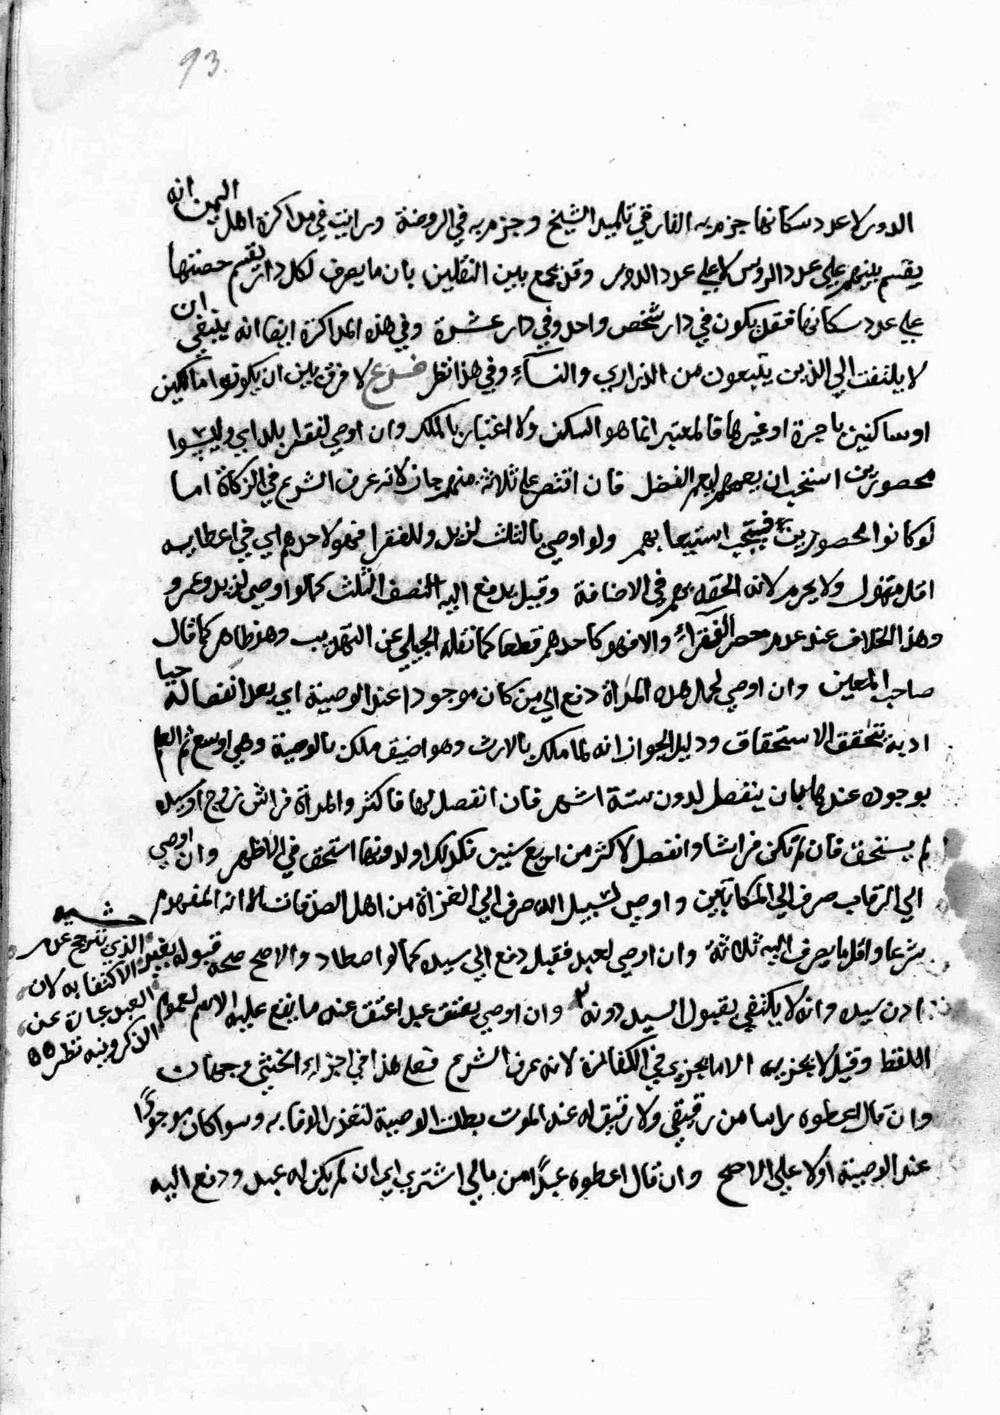 93.
الدور لا عدد سكانها جزم به الفارقي تلميذ الشيخ وجزم به في الروضة ورايت في مذاكرة اهل اليمن انه
يقسم بينهم علي عدد الروس لا علي عدد الدور وقد يجمع بين النقلين بان ما يعرف لكل دار يقسم حصتها
علي عدد سكانها فقد يكون في دار شخص واحد وفي دار عشرة وفي هذه المذاكرة ايضا انه ينبغي ان
لا يلتفت الي الذين يتبعون من الذراري والنساء وفي هذا نظر فرع لا فرق بين ان يكونوا مالكين
او ساكنين باجرة او غيرها فالمعتبر انما هو السكن ولا اعتبار بالملك وان اوصي لفقرا بلد اي وليسوا
محصورين استحب ان يعمهم ليعم الفضل فان اقتصر علي ثلاثة منهم جاز لانه عرف الشرع في الزكاة اما
لو كانوا محصورين فيجب استيعابهم ولو اوصي بالثلث لزيد وللفقرا فهو كاحدهم اي في اعطايه
اقل متمول ولا يحرم لانه الحقه بهم في الاضافة وقيل يدفع اليه النصف الثلث كما لو اوصي لزيد وعمرو
وهذا الخلاف عند عدم حصر الفقراء والا فهو كاحدهم قطعا كما نقله الجيلي عن التهذيب وهو ظاهر كما قال
صاحب المعين وان اوصي لحمل هذه المراة دفع الي من كان موجودا عند الوصية اي بعد انفصاله حيا
اذ به تتحقق الاستحقاق ودليل الجواز انه لما ملك بالارث وهو اضيق ملك بالوصية وهي اوسع ثم العلم
بوجوده عندها بان ينفصل لدون ستة اشهر فان انفصل لها فاكثر والمراة فراش زوج او سيد
لم يستحق فان لم تكن فراشا وانفصل لاكثر من اربع سنين فكذلك او لدونها استحق في الاظهر وان اوصي
الي الرقاب صرف الي المكاتبين واوصي لسبيل الله صرف الي الغزاة من اهل الصدقات لانه المفهوم
شرعا واقل ما يصرف اليه ثلاثة وان اوصي لعبد فقبل دفع الي سيده كما لو اصطاد والاصح صحة قبوله بغير
اذن سيده وانه لا يكتفي بقبول السيد دونه وان اوصي بعتق عبد اعتق عنه ما يقع عليه الاسم لعموم
اللفظ وقيل لا يجزيه الا ما يجزي في الكفارة لانه عرف الشرع فعلي هذا في اجزاء الخنثي وجهان
وان قال اعطوه راسا من رقيقي ولا رقيق له عند الموت بطلت الوصية لتعذر الوفا به وسوا كان موجودًا
عند الوصية اولا علي الاصح وان قال اعطوه عبدًا من مالي اشتري اي ان لم يكن له عبد ودفع اليه
حشيه
الذي يترجح عن
الاكتفا به لان
العبد عبارة عن
الذكر وفيه نظر